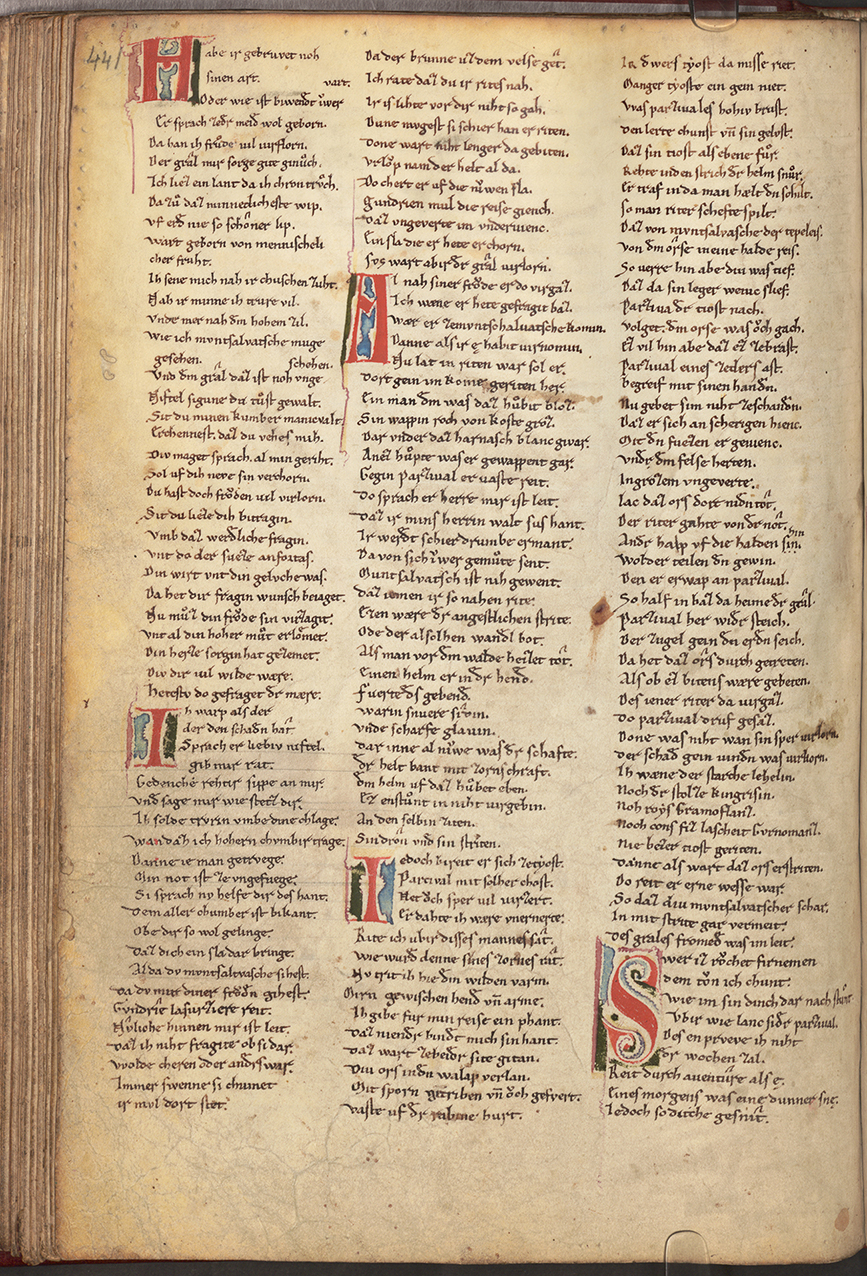 441
Habe ir gebruvet noh
sinen art. vart.
Oder wie ist biwendt iwer
Er sprach zedr meid wol geborn.
Da han ih frœde vil virlorn.
Der gral mir sorge git ginuch.
Ich liez ein lant da ih chron truch.
Da zu daz minneclicheste wip.
vf erd nie so schoner lip.
wart geborn von mennischeli
cher fruht.
Ih sene mich nah ir chuschen zuht.
Nah ir minne ih trure vil.
Vnde mer nah dm hohem zil.
Wie ich mvntsalvatsche muge
gesehen. schehen.
Vnd dm gral daz ist noh vnge
Niftel sigune du tust gewalt.
Sit du minen kumber manicvalt.
Erchennest. daz du vehes mih.
Div maget sprach. al min geriht.
Sol uf dih neve sin verchorn.
Du hast doch froden vil virlorn.
Sit du lieze dih bitragin.
Vmb daz werdliche fragin.
Vnt do der suzze anfortas.
Din wirt vnt din geluche was.
Da het dir fragin wunsch beiaget.
Nu muz din frode sin virzagit.
Vnt al din hoher mut erlomet.
Din herze sorgin hat gezemet.
Div dir vil wilde wære.
Hetestv do gefraget dr mære.
Ih warp als der
der den schadn hat.
Sprach er liebiv niftel.
gib mir rat.
Gedenche rehtir sippe an mir.
Vnd sage mir wie stetz dir.
Ih solde trvrn vmbe dine chlage.
Wan daz ih hohern chvmbir trage.
Danne ie man getrvege.
Min not ist ze vngefuege.
Si sprach nv helfe dir des hant.
Dem aller chumber ist bikant.
Obe dir so wol gelinge.
Daz dich ein sla dar bringe.
Al da dv mvntsalvasche sihest.
Da dv mir diner frodn gihest.
Cvndrie lasurziere reit.
Nvliche hinnen mir ist leit.
Daz ih niht fragite ob si dar.
Wolde cheren oder andrs war.
Immer swenne si chumet
ir mvl dort stet.
Da der brunne uz dem velse get.
Ich rate daz du ir rites nah.
Ir is lihte vor dir niht so gah.
Dune mvgest si schier han er riten.
Done wart niht lenger da gebiten.
Vrlop nam der helt al da.
Do chert er uf die niwen sla.
Gundrien mul die reise giench.
Daz vngeverte im vndervienc.
Ein sla die er hete erchorn.
Svs wart abir dr gral virlorn.
Al nah siner frode er do virgaz.
Ich wæne er hete gefragit baz.
Wær er ze mvntschalvatsche komin.
Danne als ir e habit virnomin.
Nu lat in riten war sol er.
Dort gein im kom geriten her.
Ein man dm was daz hubit bloz.
Sin wappin roch von koste groz.
Dar vnder daz harnasch blanc givar.
Anez hupte was er gewappent gar.
Gegin parzival er vaste reit.
Do sprach er herre mir ist leit.
Daz ir mins herrin walt sus bant.
Ir werdt schier drumbe ermant.
Da von sich iwer gemute sent.
Muntsalvatsch ist nih gewent.
daz iemen ir so nahen rite.
Ezen wære dr angestlichen strite.
Ode der alsolhen wandl bot.
Als man vor dm walde heizet tot.
Einen helm er in dr hend.
Fuerte ds gebend.
Warin snuere sidin.
Vnde scharfe glavin.
Dar inne al niwe was dr schafte.
dr helt bant mit zornschraft.
dm helm uf daz hubet eben.
Ez enstunt in niht virgebin.
An den selbin ziten.
Sin dron vnd sin striten.
Iedoch bireit er sich ze tyost.
Parcival mit solher chost.
Het och sper vil virzert.
Er dahte ih wære vnernerte.
Rite ich vbir disses mannes sat.
Wie wurd denne sines zornes rat.
Nv trit ih hie din wilden varm.
Mirn gewischen hend vn arme.
Ih gibe fur min reise ein phant.
Daz niendr bindt mich sin hant.
Daz wart zebedr site gitan.
Div ors indn walap verlan.
Mit sporn getriben vn och gefvert.
Vaste uf dr rabine hurt.
Ir dwers tyost da misse riet.
Manger tyoste ein gein niet.
Vvas parzivales hohiv brust.
Den lerte chunst vn sin gelost.
Daz sin tiost als ebene fur.
Rehte in den strich dr helm snur.
Er traf in da man hælt dn schilt.
So man riter schefte spilt.
Daz von mvntsalvasche der tepeleis.
Von dm orse in eine halde reis.
So verre hin abe diu was tief.
Daz da sin leger wenic slief.
Parziva dr tiost nach.
Volget. dm orse was och gach.
Ez vil hin abe daz ez zebrast.
Parzival eines zeders ast.
begreif mit sinen handn.
Nu gebet sim niht zeschandn.
Daz er sich an schergen hienc.
Mit dn fuezen er gevienc.
Vndr dm felse herten.
In grozem vngeverte.
lac daz ors dort nidn tot.
Der riter gahte von dr not.
Andr halp vf die halden sin. hin
Wolder teilen dn gewin.
Den er erwap an parzival.
So half in baz da heime dr gral.
Parzival her widr steich.
Der zugel gein dn erdn seich.
Da het daz ors durch getreten.
Als ob ez bitens wære gebeten.
Des iener riter da virgaz.
Do parzival druf gesaz.
Done was niht wan sin sper virlorn.
der schad gein vindn was virkorn.
Ih wæne der starche lehelin.
Noch dr stolze kingrisin.
Noh roys Gramoflanz.
Noch cons fiz lascheit Gvrnomanz.
Nie bezer tiost geriten.
Danne als wart daz ors erstriten.
Do reit er erne wesse war.
So daz diu mvntsalvatscher schar.
In mit strite gar vermeit.
Des grales fromed was im leit.
Swer iz rochet firnemen
dem ton ich chunt.
Wie im sin dinch dar nach stunt.
Vbir wie lanc sidr parzival.
Des en prveve ih niht
dr wochen zal.
Reit durch aventure als e.
Eines morgens was eine dunner sne.
Iedoch so diche gesnit.